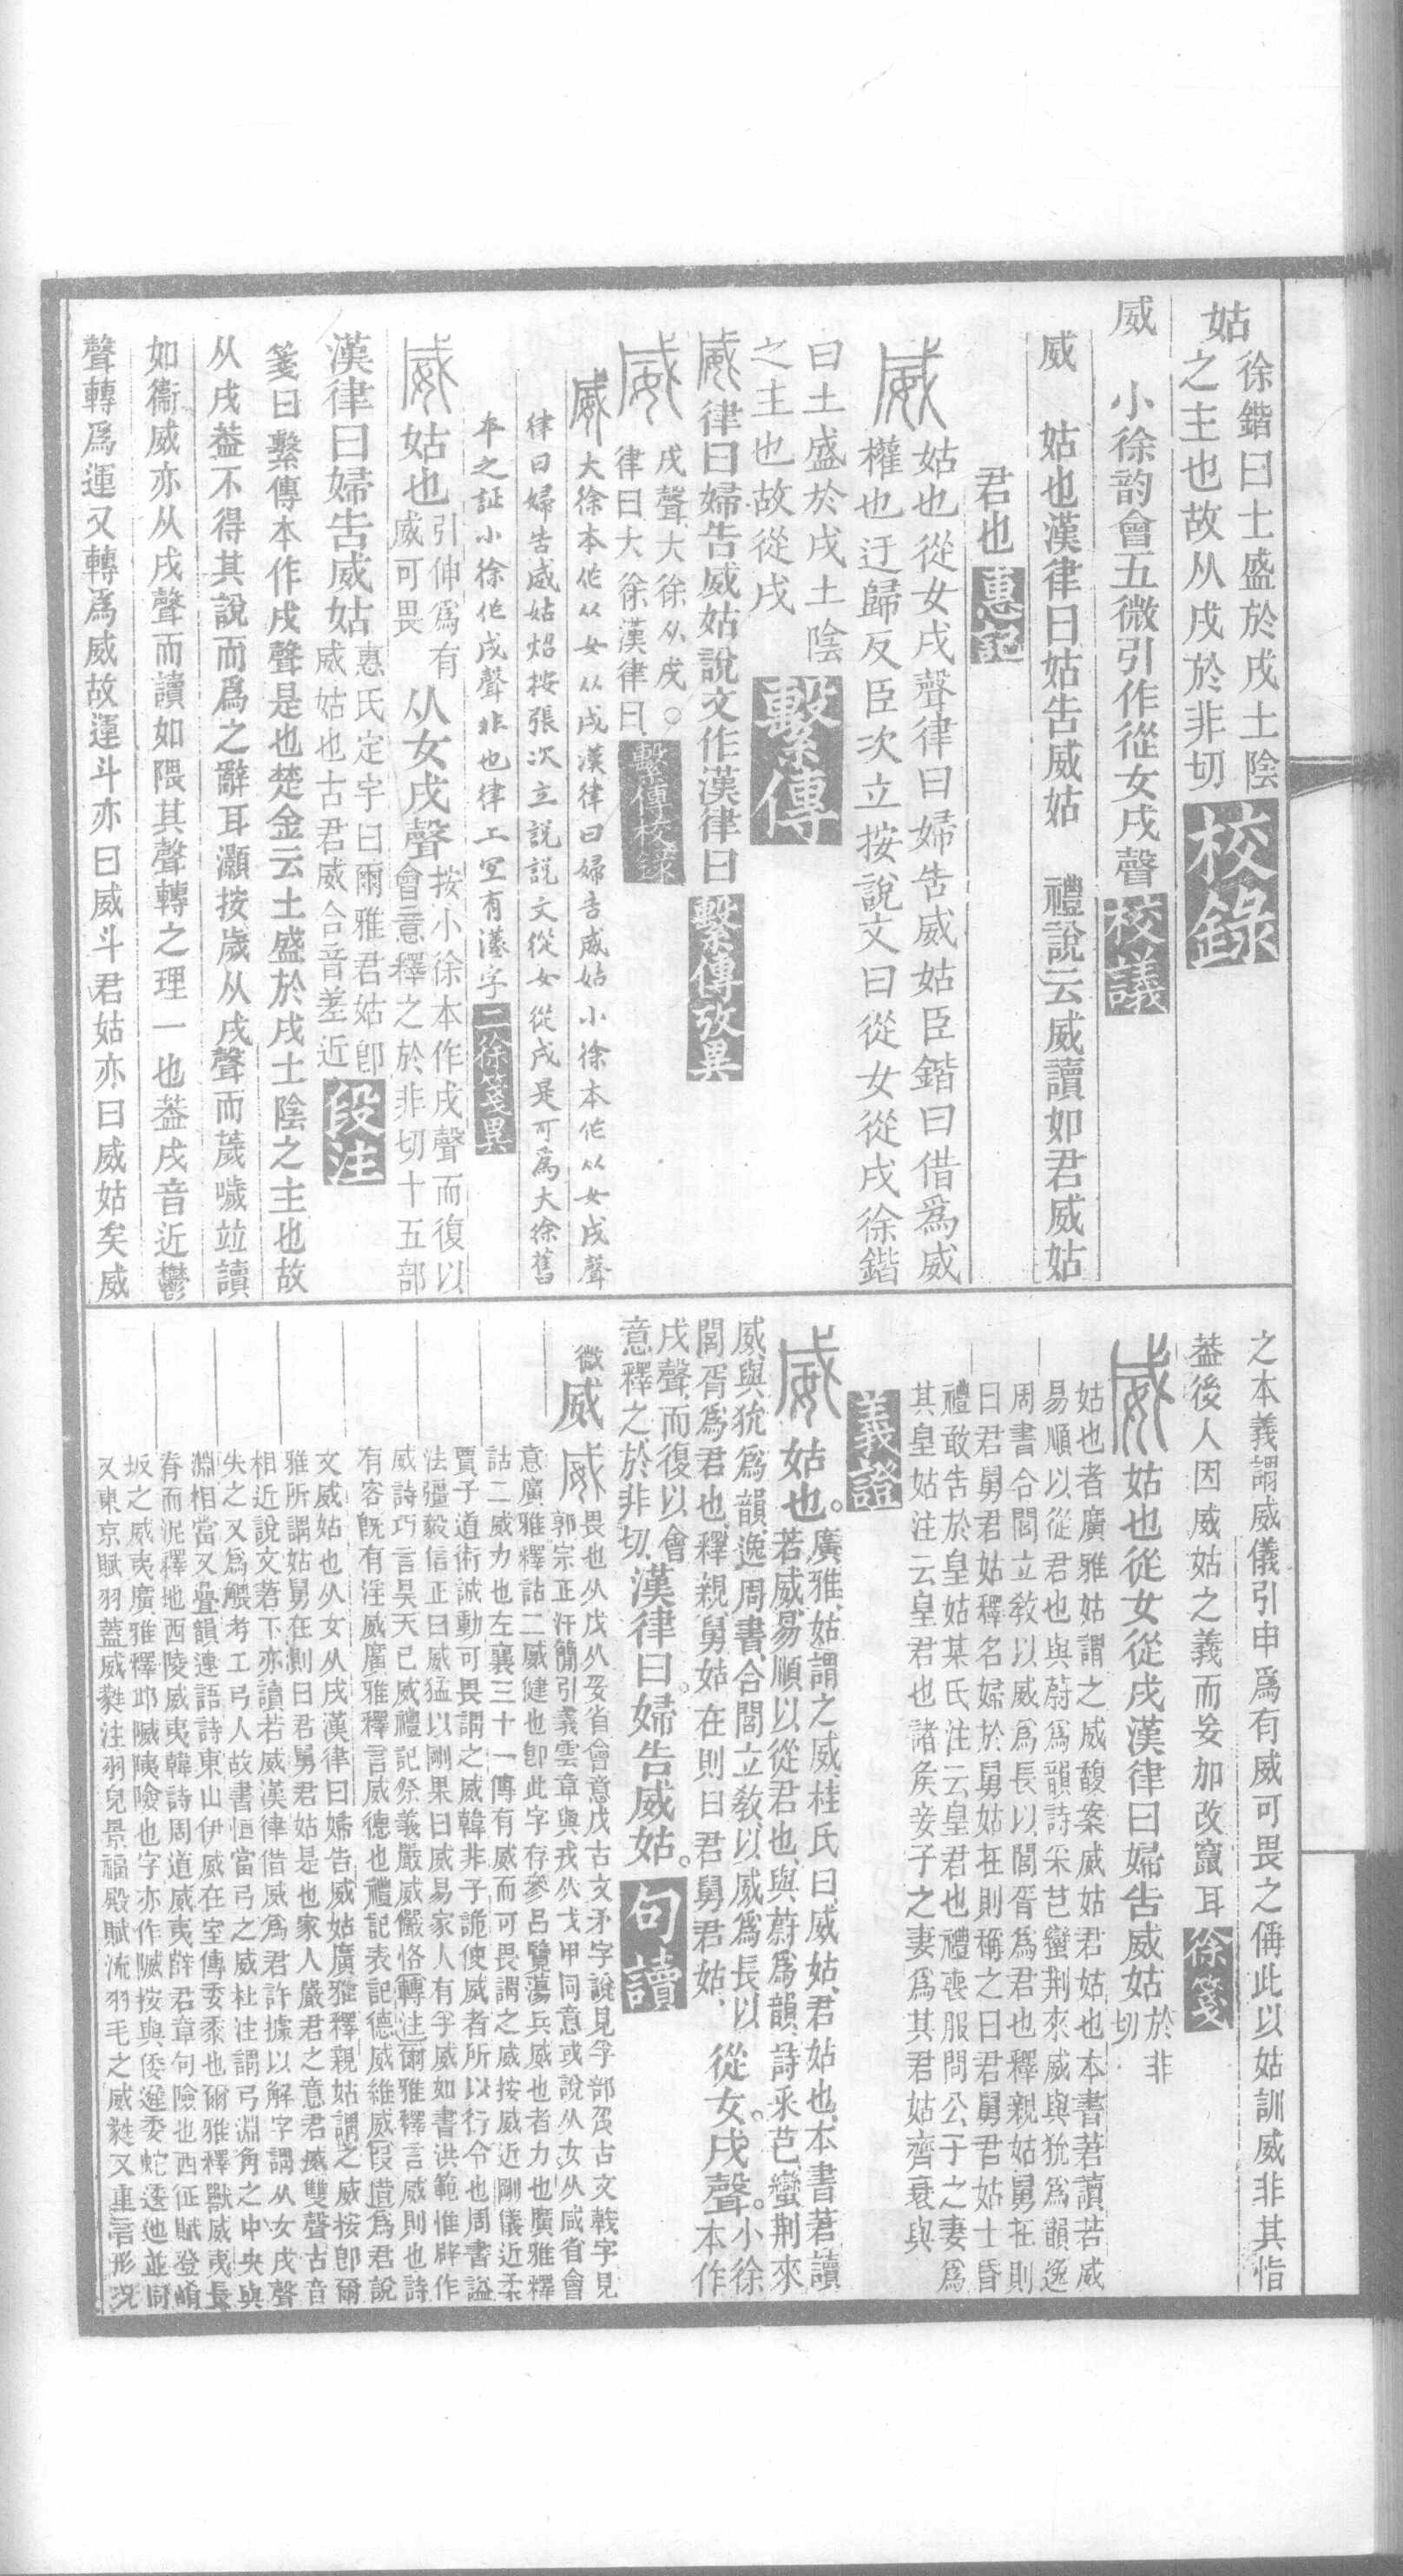 姑
徐鍇曰土盛於戌土陰
之主也故从戌於非切
校錄
威　小徐韵會五微引作從女戌聲
校議
威　姑也漢律曰姑告威姑　禮說云威讀如君威姑
君也
惠記
威
姑也從女戌聲律曰婦告威姑臣鍇曰借爲威
權也迂歸反臣次立按說文曰從女從戌徐鍇
曰土盛於戌土陰
之主也故從戌
繫傳
威律曰婦告威姑說文作漢律曰
繫傳攷異
威
戌聲大徐从戌○
律曰大徐漢律曰
繫傳校錄
威大徐本作从女从戌漢律曰婦告威姑小徐本作从女戌聲
律曰婦告威姑炤按張次立説説文從女從戌是可爲大徐舊
本之証小徐作戌聲非也律上宜有漢字
二徐箋異
威姑也
引伸爲有
威可畏
从女戌聲
按小徐本作戌聲而復以
會意釋之於非切十五部
漢律曰婦告威姑
惠氏定宇曰爾雅君姑卽
威姑也古君威合音差近
段注
箋曰繫傳本作戌聲是也楚金云土盛於戌土陰之主也故
从戌葢不得其說而爲之辭耳灝按歲从戌聲而薉噦竝讀
如衞威亦从戌聲而讀如隈其聲轉之理一也葢戌音近鬱
聲轉爲運又轉爲威故運斗亦曰威斗君姑亦曰威姑矣威
之本義謂威儀引申爲有威可畏之偁此以姑訓威非其恉
葢後人因威姑之義而妄加改竄耳
徐箋
威姑也從女從戌漢律曰婦告威姑
於非
切
姑也者廣雅姑謂之威馥案威姑君姑也本書莙讀若威
易順以從君也與蔚爲韻詩采芑蠻荆來威與狁爲韻逸
周書合閭立敎以威爲長以閭胥爲君也釋親姑舅在則
曰君舅君姑釋名婦於舅姑在則稱之曰君舅君姑士昏
禮敢告於皇姑某氏注云皇君也禮喪服問公子之妻爲
其皇姑注云皇君也諸矦妾子之妻爲其君姑齊衰與
義證
威姑也。
廣雅姑謂之威桂氏曰威姑君姑也本書莙讀
若威易順以從君也與蔚爲韻詩采芑蠻荆來
威與狁爲韻逸周書合閭立敎以威爲長以
閭胥爲君也釋親舅姑在則曰君舅君姑、
從女。戌聲。
小徐
本作
戌聲而復以會
意釋之於非切
漢律曰。婦告威姑。
句讀
微威
威
畏也从戊从妥省會意戊古文矛字說見孚部䍒古文㦸字見
郭宗正汗簡引義雲章與戎从戈甲同意或說从女从咸省會
意廣雅釋詁二威健也卽此字存參呂覽蕩兵威也者力也廣雅釋
詁二威力也左襄三十一傳有威而可畏謂之威按威近剛儀近柔
賈子道術誠動可畏謂之威韓非子詭使威者所以行令也周書謚
法彊毅信正曰威猛以剛果曰威易家人有孚威如書洪範惟辟作
威詩巧言昊天已威禮記祭義嚴威儼恪轉注爾雅釋言威則也詩
有客旣有淫威廣雅釋言威德也禮記表記德威維威叚借爲君說
文威姑也从女从戌漢律曰婦告威姑廣雅釋親姑謂之威按卽爾
雅所謂姑舅在則曰君舅君姑是也家人嚴君之意君威雙聲古音
相近說文莙下亦讀若威漢律借威爲君許據以解字謂从女戌聲
失之又爲䚈考工弓人故書恒當弓之威杜注謂弓淵角之中央與
淵相當又疊韻連語詩東山伊威在室傳委黍也爾雅釋獸威夷長
脊而泥釋地西陵威夷韓詩周道威夷薛君章句險也西征賦登崤
坂之威夷廣雅釋邱隇陦險也字亦作隇按與倭遲委蛇逶迤並同
又東京賦羽蓋威蕤注羽皃景福殿賦流羽毛之威蕤又重言形況